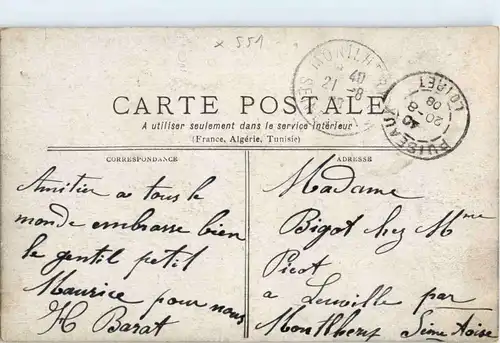 x 551
MONTLHERY
40
21 -8
SEINE
PUISEAUX
40
20-8
08
LOIRET
CARTE POSTALE
A utiliser seulement dans le service intérieur
(France, Algérie, Tunisie)
CORRESPONDANCE
Amitier a tous le
monde embrasse bien
le gentil petit
Maurice pour nous
H Barat
ADRESSE
Madame
Bigot chez Mme
Picot
a Leuville par
Montlhery Seine Aoise